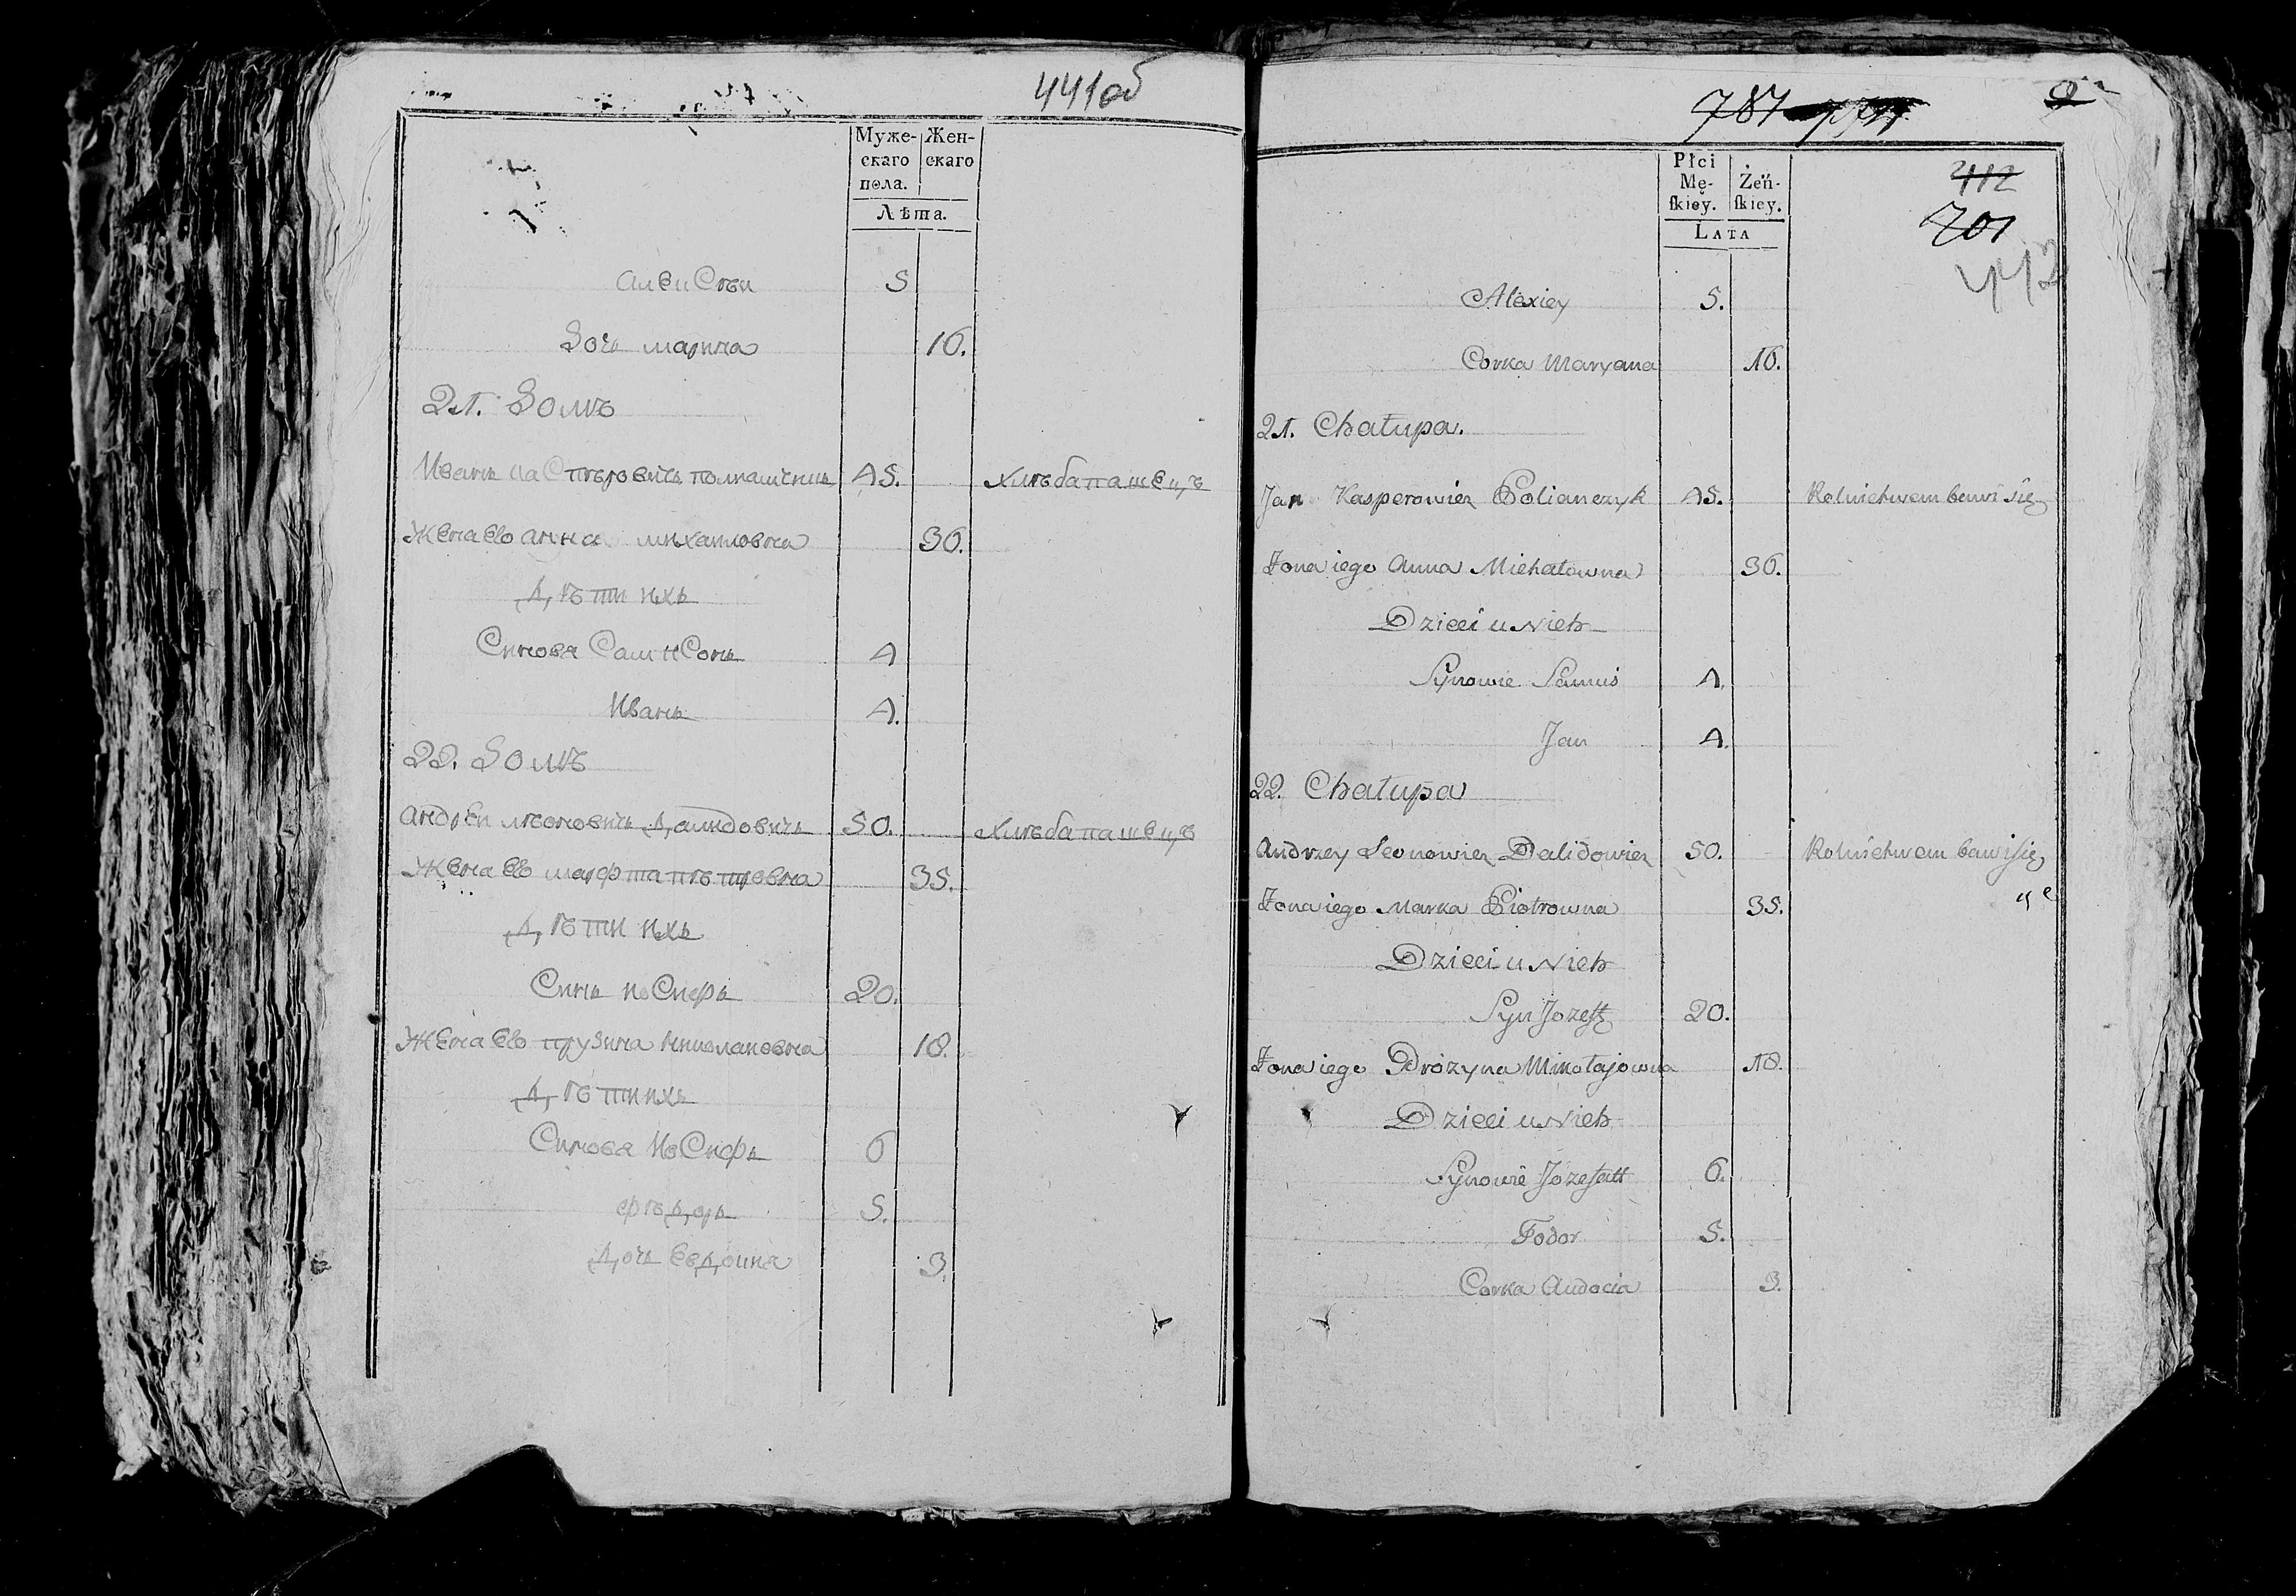 441об
Муже-
скаго
пола.
Жен-
скаго
Лѣта.
Алексѣи 5
дочь марина 16.
21. Домъ
Иванъ каспѣровичь полианчикъ 45. хлѣбапашецъ
жена ево анна михаиловна 36.
Дѣти ихъ
Синовя Самисонъ 4
Иванъ 4.
22. Домъ
андреи лѣоновичь Далидовичь 50. хлѣбапашецъ
жена ево марфта пѣтровна 35.
Дѣти ихъ
Синъ иосифъ 20.
жена ево прузина николаиовна 18.
Дѣти ихъ
Синовя Иосифъ 6
фѣдоръ 5.
Дочь Евдокия 3
787
412
701
442
Płci
Mę-
ſkiey.
Żeń-
ſkiey.
LATA
Alexiey 5.
Corka Maryana 16.
21. Chałupa.
Jan Kasperowicz Polianczyk 45. Rolnictwem bawi się
Żona iego Anna Michałowna 36.
Dzieci u Nich
Synowie Samuś 4.
Jan 4.
22. Chałupa
Andrzey Leonowicz Dalidowicz 50. Rolnictwem bawi się
Żona iego Marta Piotrowna 35.
Dzieci u Nich
Syn Jozeff 20.
Żona iego Drózyna Mikołajowna 18.
Dzieci u Nich
Synowie Jozefatt 6.
Fodor 5.
Corka Audocia 3.